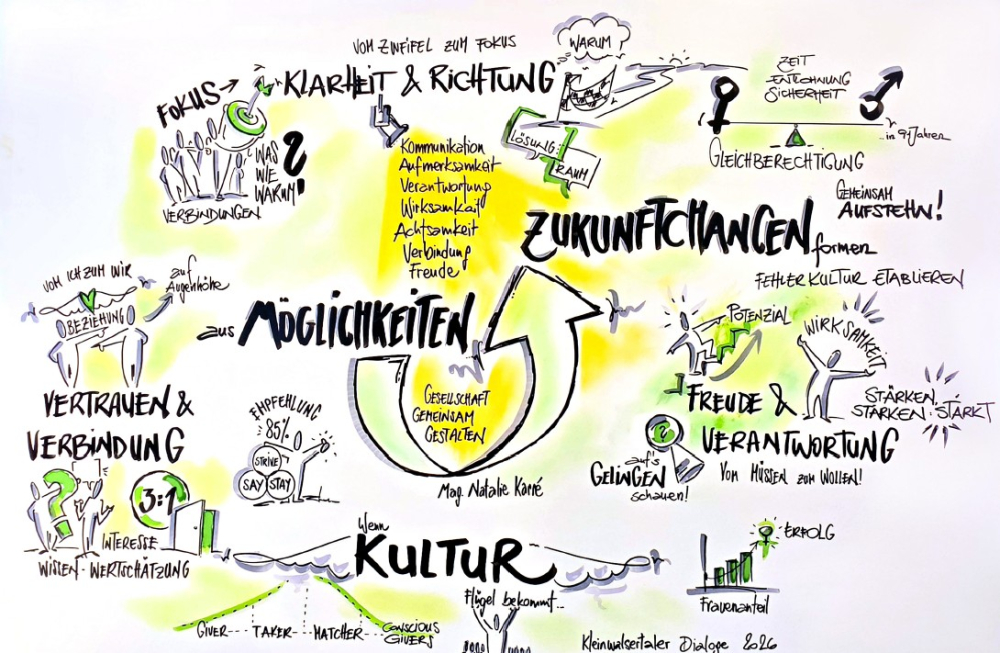 VOM ZWEIFEL ZUM FOKUS
KLARHEIT & RICHTUNG
WARUM
FOKUS
WAS
WIE
WARUM
?!
VERBINDUNGEN
Kommunikation
Aufmerksamkeit
Verantwortung
Wirksamkeit
Achtsamkeit
Verbindung
Freude
LÖSUNG:
RAUM
ZEIT
ENTLOHNUNG
SICHERHEIT
...in 91 Jahren
GLEICHBERECHTIGUNG
GEMEINSAM
AUFSTEHN!
aus MÖGLICHKEITEN
ZUKUNFTCHANCEN formen
GESELLSCHAFT
GEMEINSAM
GESTALTEN
Mag. Natalie Karré
VOM ICH ZUM WIR
auf
Augenhöhe
BEZIEHUNG
VERTRAUEN &
VERBINDUNG
?
3:1
INTERESSE
WISSEN - WERTSCHÄTZUNG
EMPFEHLUNG
85%
STRIVE
SAY
STAY
FEHLERKULTUR ETABLIEREN
POTENZIAL
WIRKSAMKEIT
FREUDE &
VERANTWORTUNG
STÄRKEN
STÄRKEN · STÄRKT
VOM MÜSSEN ZUM WOLLEN!
auf's
GELINGEN
schauen!
Wenn
KULTUR
Flügel bekommt...
GIVER --- TAKER --- MATCHER --- CONSCIOUS
GIVERS
ERFOLG
Frauenanteil
Kleinwalsertaler Dialoge 2026